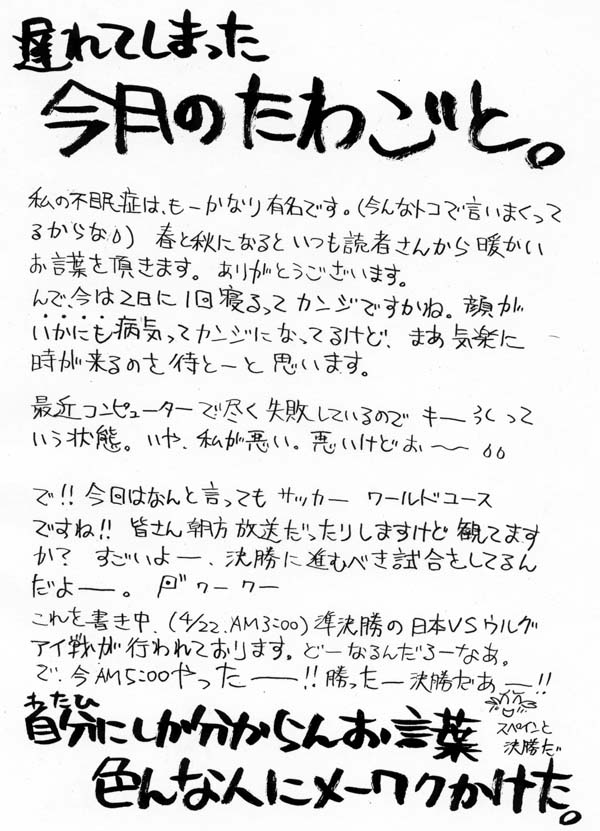 遅れてしまった
今月のたわごと。
私の不眠症は、もーかなり有名です。(今んなトコで言いまくって
るからなぁ) 春と秋になるといつも読者さんから暖かい
お言葉を頂きます。ありがとうございます。
んで、今は2日に1回寝るってカンジですかね。顔が
いかにも病気ってカンジになってるけど、まあ気楽に
時が来るのを待とーと思います。
最近コンピューターで尽く失敗しているので キーうくって
いう状態。いや、私が悪い。悪いけどぉ〜
で!! 今回はなんと言ってもサッカー ワールドユース
ですね!! 皆さん朝方放送だったりしますけど観てます
か? すごいよー、決勝に進むべき試合をしてるん
だよー。 ワーワー
これを書き中、(4/22.AM3:00)準決勝の日本VSウルグ
アイ戦が行われております。どーなるんだろーなあ。
で、今AM5:00やったー!!勝ったー決勝だあー!!
スペインと
決勝だ
わたひ
自分にしか分からんお言葉
色んな人にメーワクかけた。